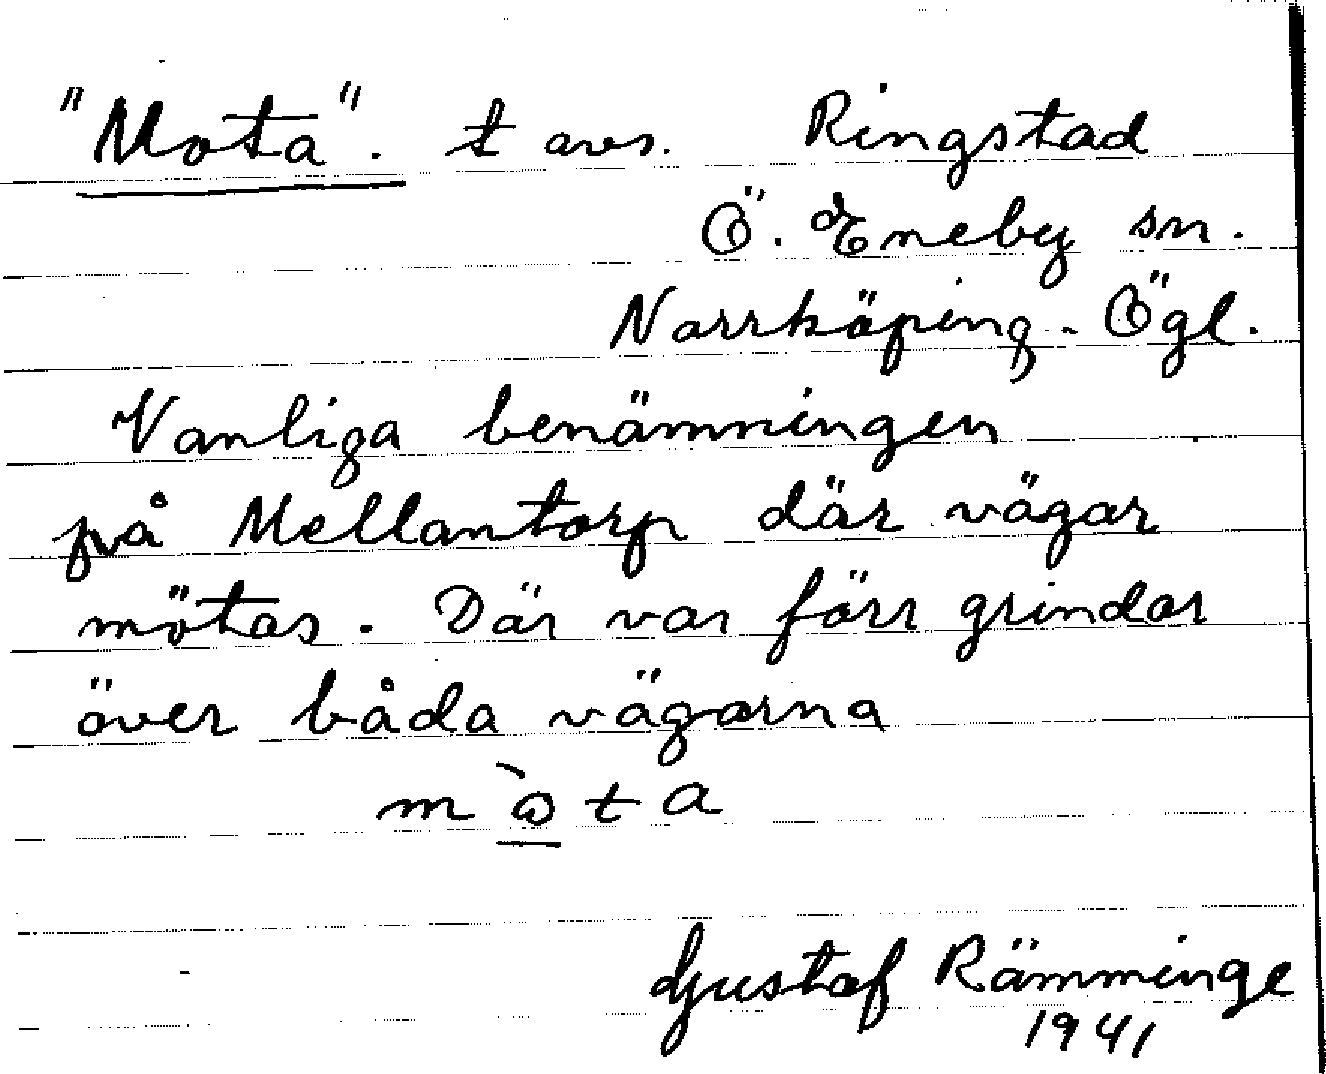 "Mota". t avs. Ringstad
Ö. Eneby sn.
Norrköping. Ögl.
Vanliga benämningen
på Mellantorp där vägar
mötas. Där var förr grindar
över båda vägarna
m ò t a
Gustaf Rämminge
1941